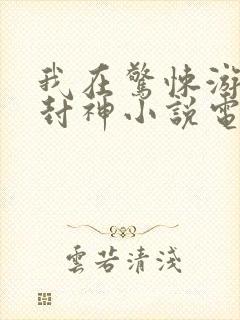 我在驚悚游
封神小說電
雲若清淺